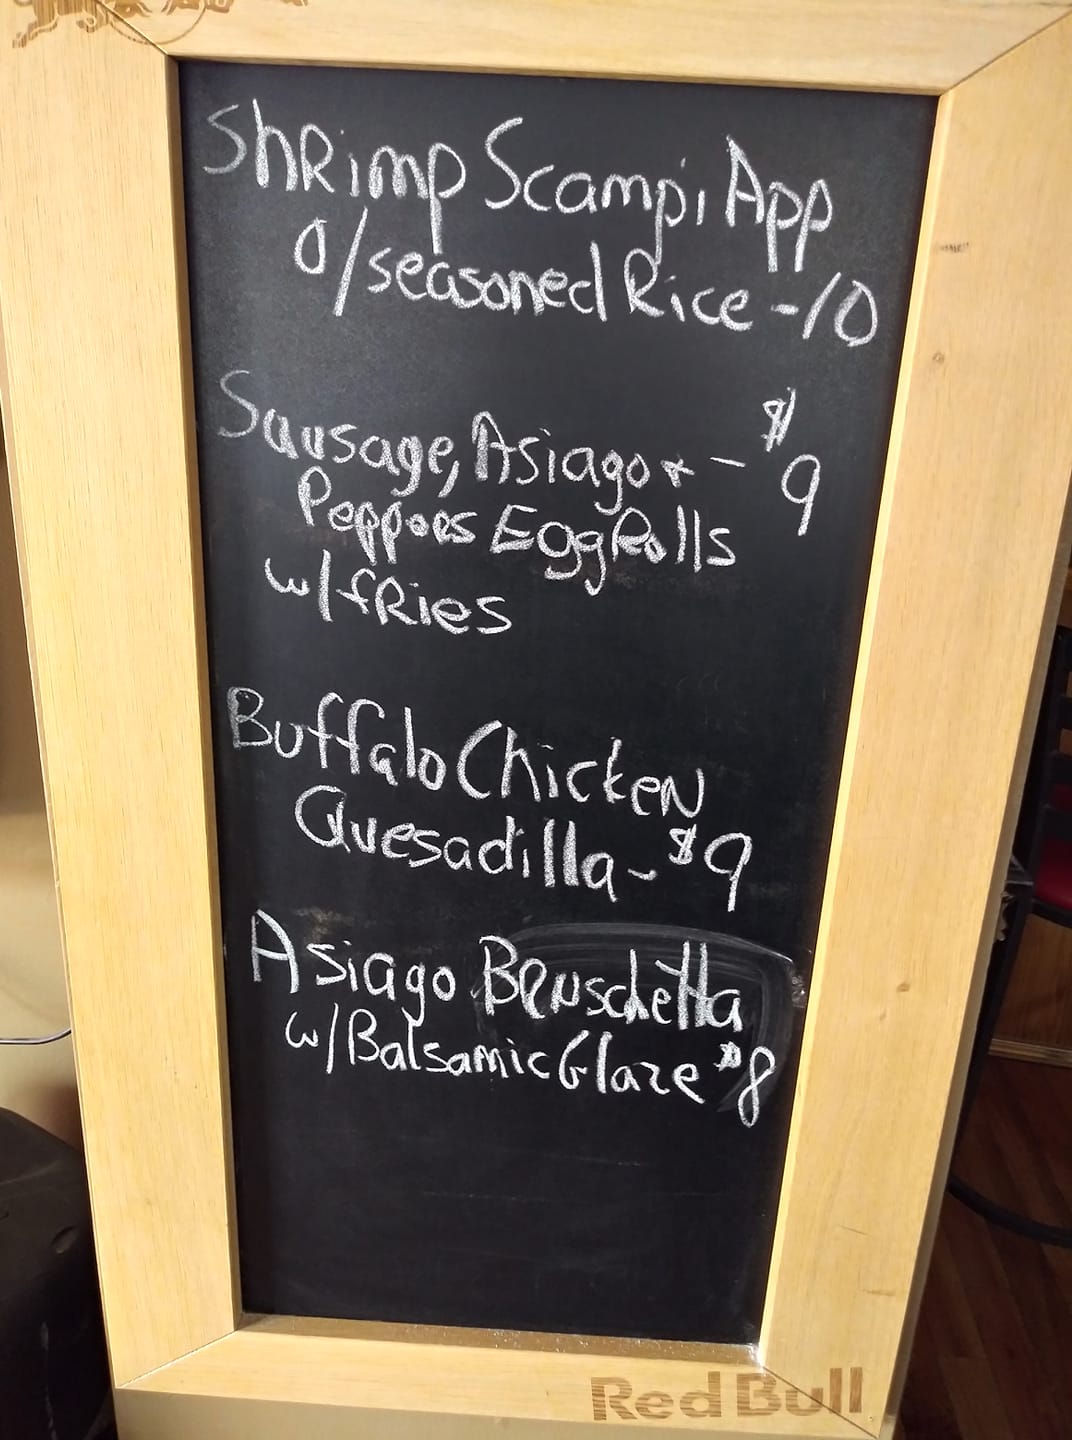 ShRimp Scampi App
O/seasoned Rice -10
Sausage, Asiago + - $9
Peppers Egg Rolls
w/fRies
Buffalo Chicken
Quesadilla - $9
Asiago Bruschetta
w/Balsamic Glaze $8
Red Bull